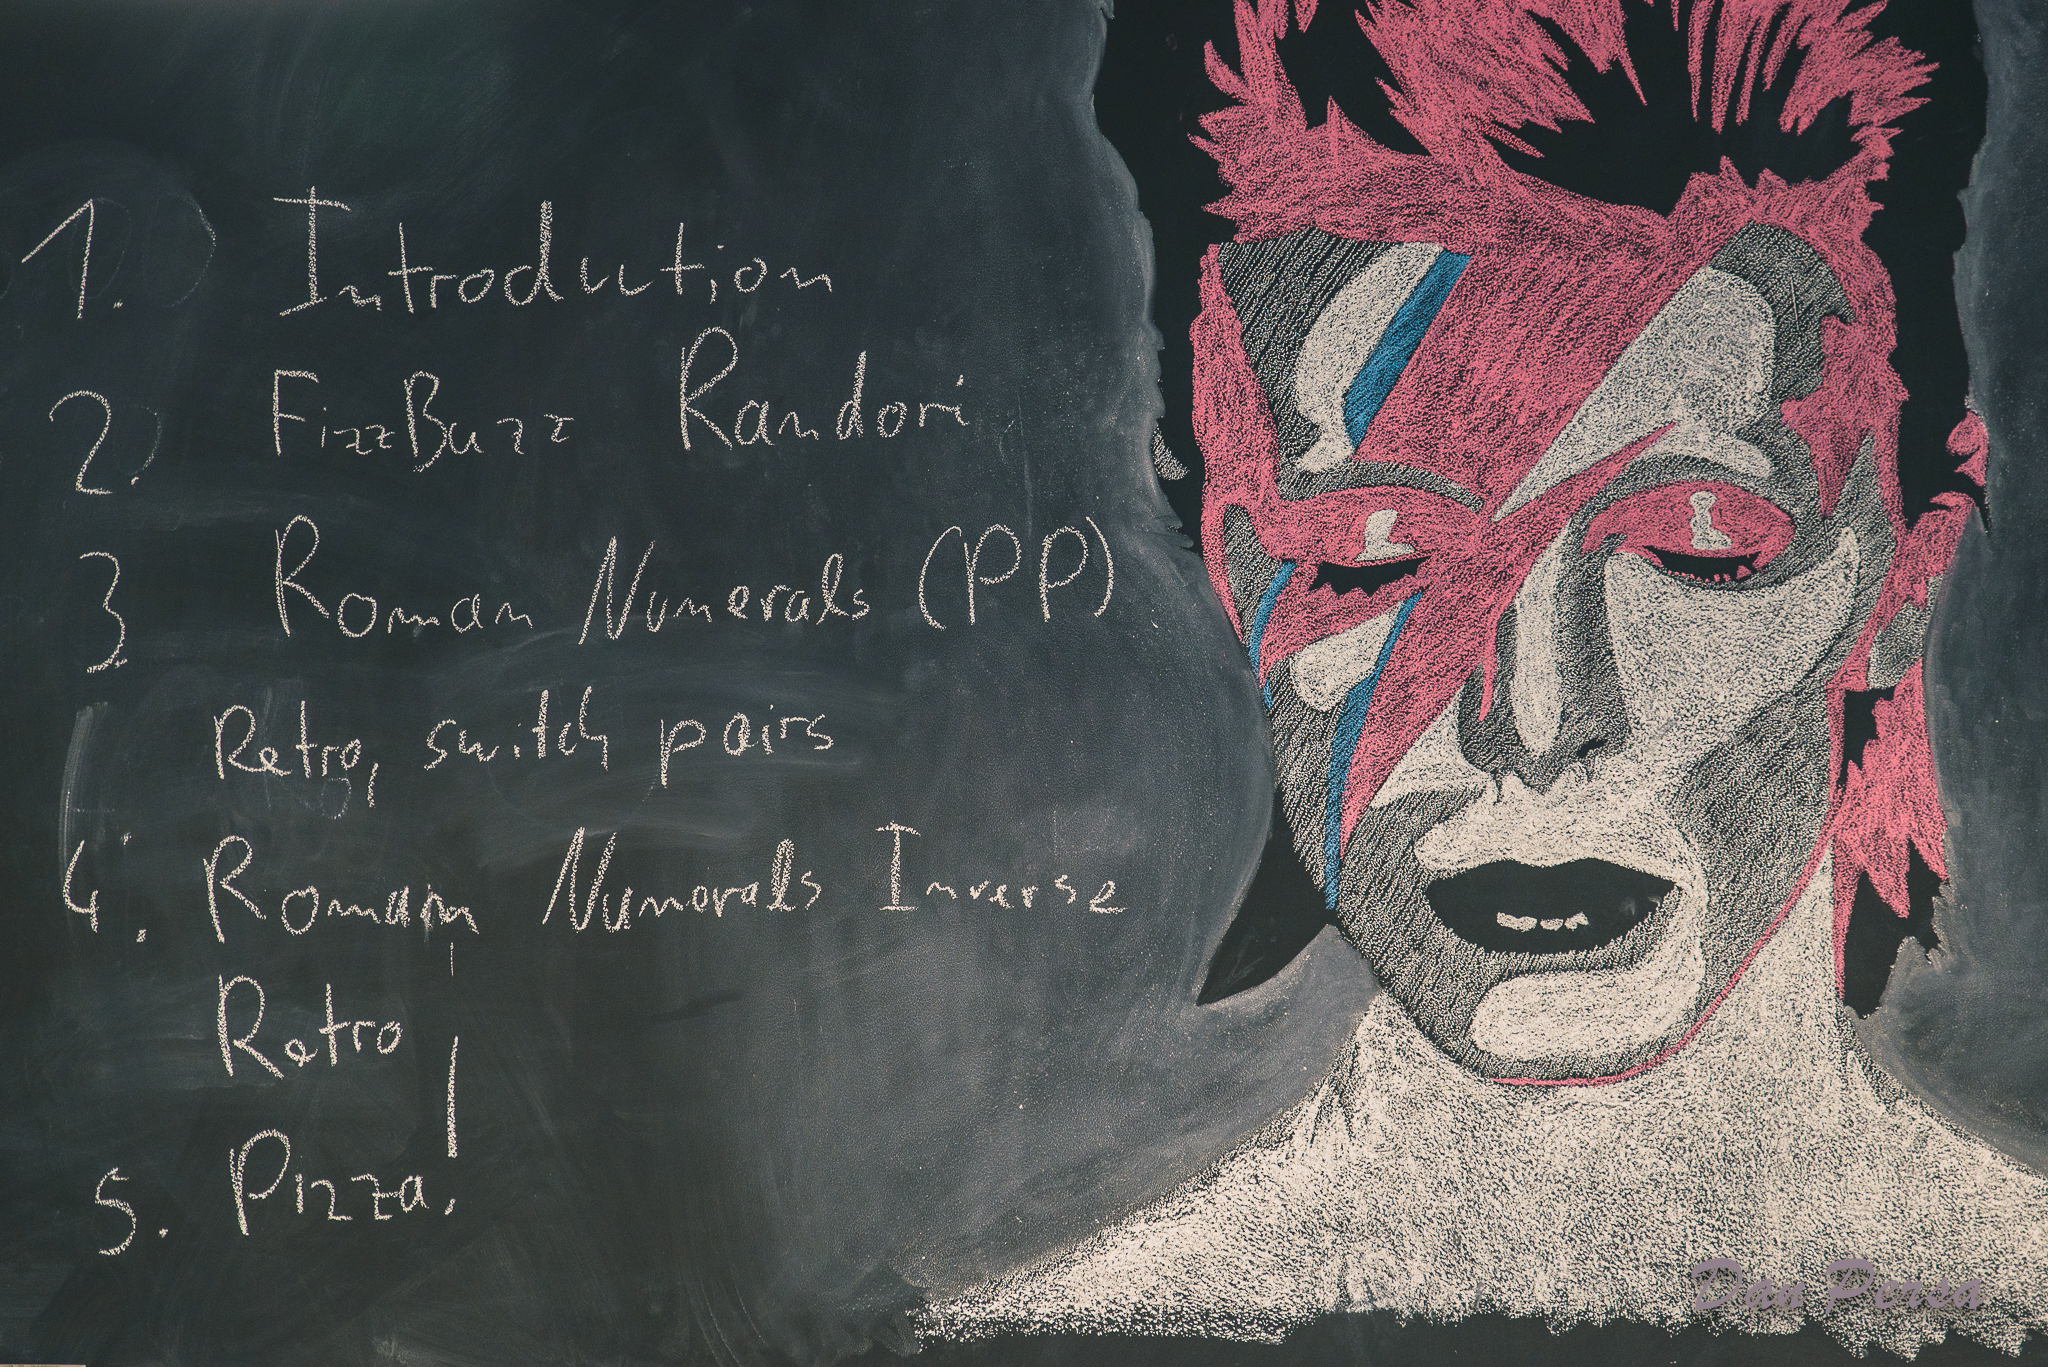 1. Introduction
2. FizzBuzz Randori
3 Roman Numerals (PP)
Retro, switch pairs
4. Roman Numerals Inverse
Retro
5. Pizza!
Dan Persa